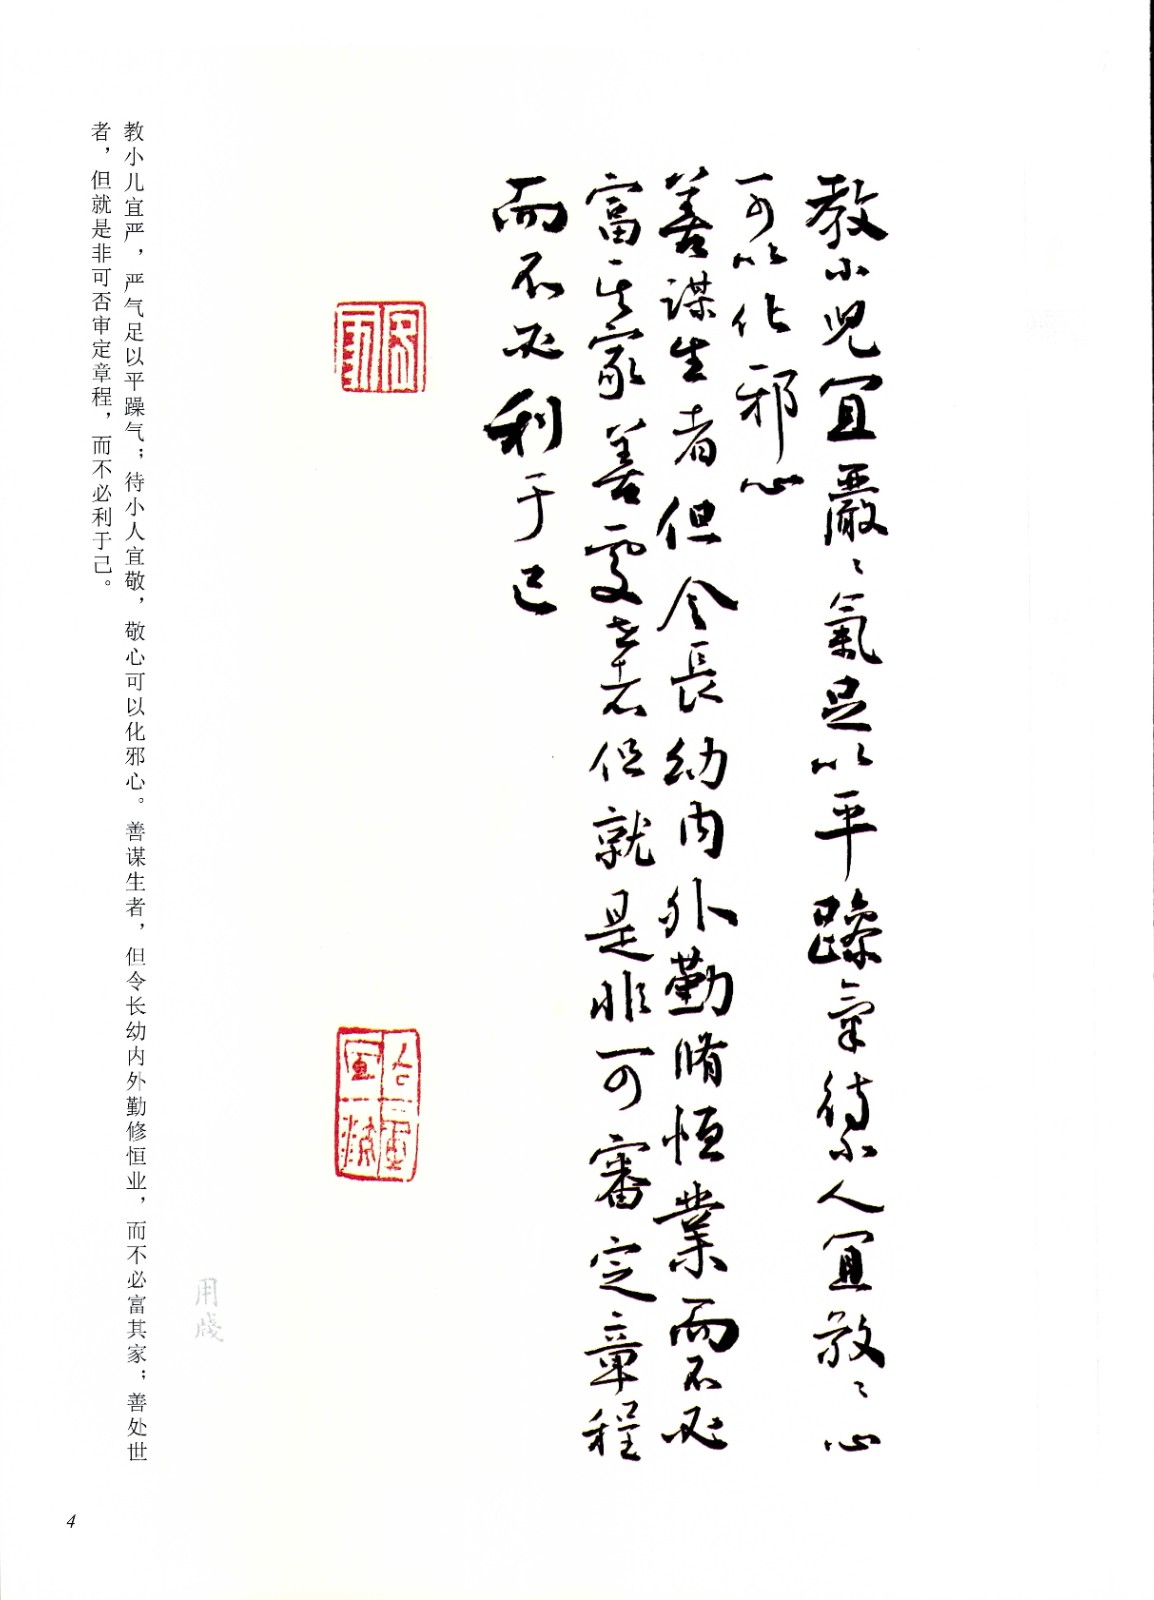 教小兒宜嚴〻氣足以平躁氣待小人宜敬〻心
可以化邪心
善謀生者但令長幼内外勤脩恒業而不必
富其家善處世者但就是非可否審定章程
而不必利于己
教小儿宜严，严气足以平躁气；待小人宜敬，敬心可以化邪心。善谋生者，但令长幼内外勤修恒业，而不必富其家；善处世
者，但就是非可否审定章程，而不必利于己。
用牋
4